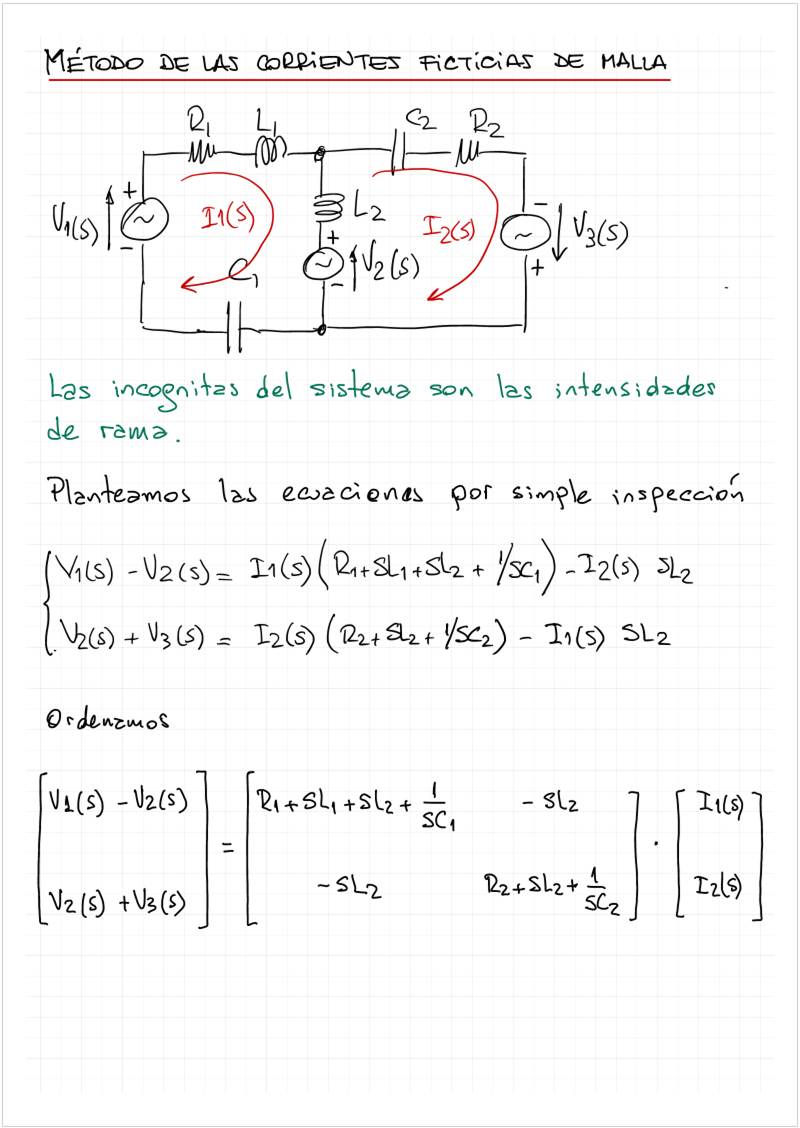 MÉTODO DE LAS CORRIENTES FICTICIAS DE MALLA
R₁ L₁ C₂ R₂
+ -
V1(s) I1(s) L₂ I2(s) V3(s)
- + V2(s) +
C₁ -
Las incognitas del sistema son las intensidades
de rama.
Planteamos las ecuaciones por simple inspección
V1(s) - V2(s) = I1(s) (R₁+SL₁+SL₂ + 1/SC₁) - I2(s) SL₂
V2(s) + V3(s) = I2(s) (R₂+SL₂+1/SC₂) - I1(s) SL₂
Ordenamos
[V1(s) - V2(s)] = [R₁+SL₁+SL₂+ 1/SC₁ - SL₂] · [I1(s)]
[V2(s) + V3(s)] [-SL₂ R₂+SL₂+ 1/SC₂] [I2(s)]